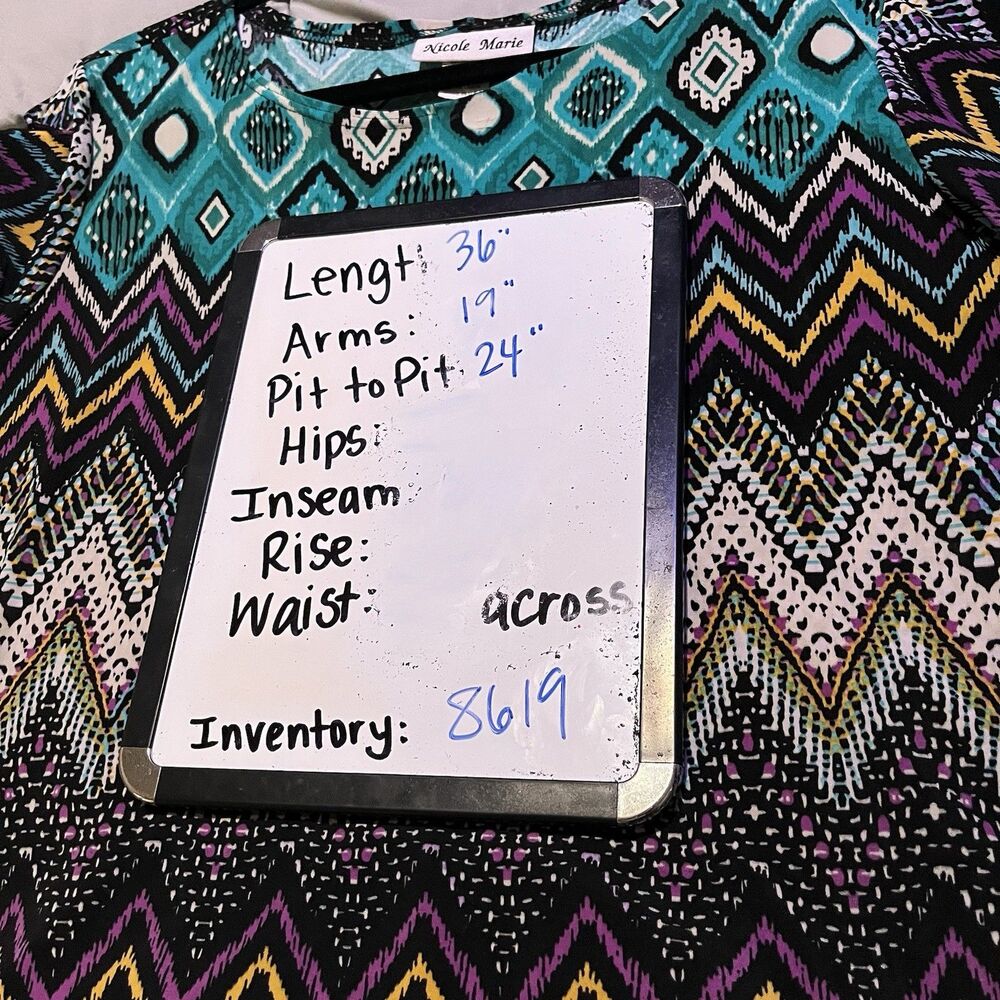 Nicole Marie
Lengt: 36"
Arms: 19"
Pit to Pit: 24"
Hips:
Inseam
Rise:
Waist: across
Inventory: 8619